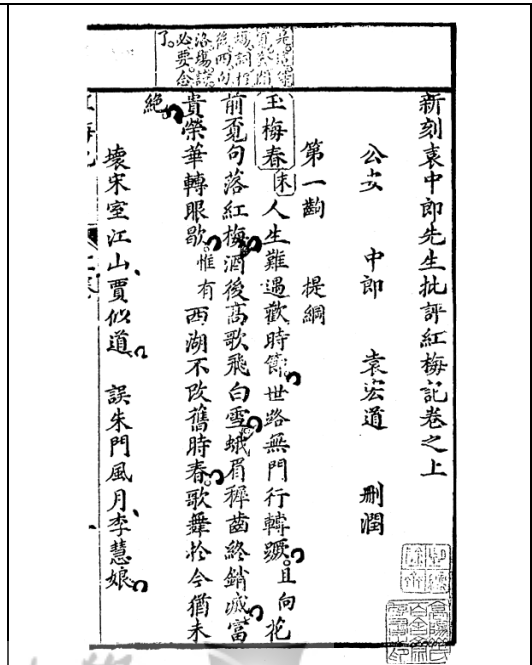 新刻袁中郎先生批評紅梅記卷之上
公安　中郎　袁宏道　刪潤
第一齣　提綱
玉梅春 末 人生難遇歡時節世路無門行轉蹶。且向花
前覓句落紅梅酒後高歌飛白雪蛾眉稺齒終銷滅富
貴榮華轉眼歇。惟有西湖不改舊時春歌舞於今猶未
絕
壞宋室江山賈似道　誤朱門風月李慧娘
後四句
必要念
了。